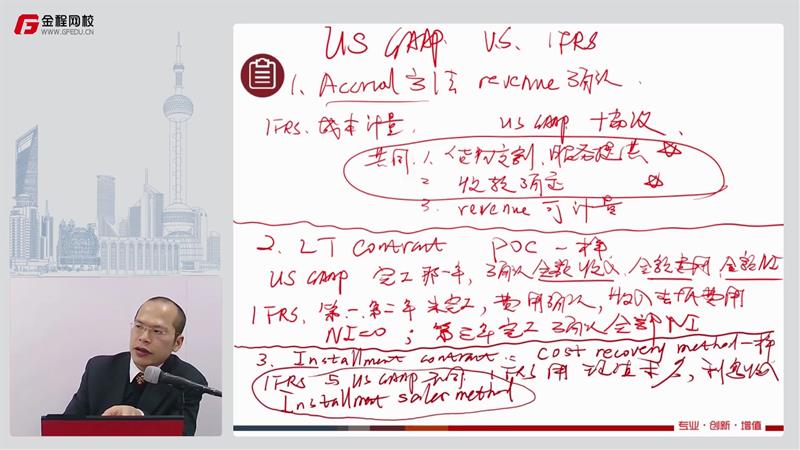 金程网校
WWW.GFEDU.CN
US GAAP VS. IFRS
1. Accrual 方法 revenue 确认
IFRS. 成本计量. US GAAP
共同. 1. 货物交割、服务提供
2. 收款确定
3. revenue 可计量
2. LT contract POC 一样
US GAAP 完工那一年, 确认全额收入、全额费用、全额NI
IFRS. 第一、第二年未完工, 费用确认, 收入
NI=0 ; 第三年完工 确认全部 NI
3. Installment contract: cost recovery method 一样
IFRS 与 US GAAP 不同. IFRS 用 现值, 利息收入
Installment sales method
专业·创新·增值